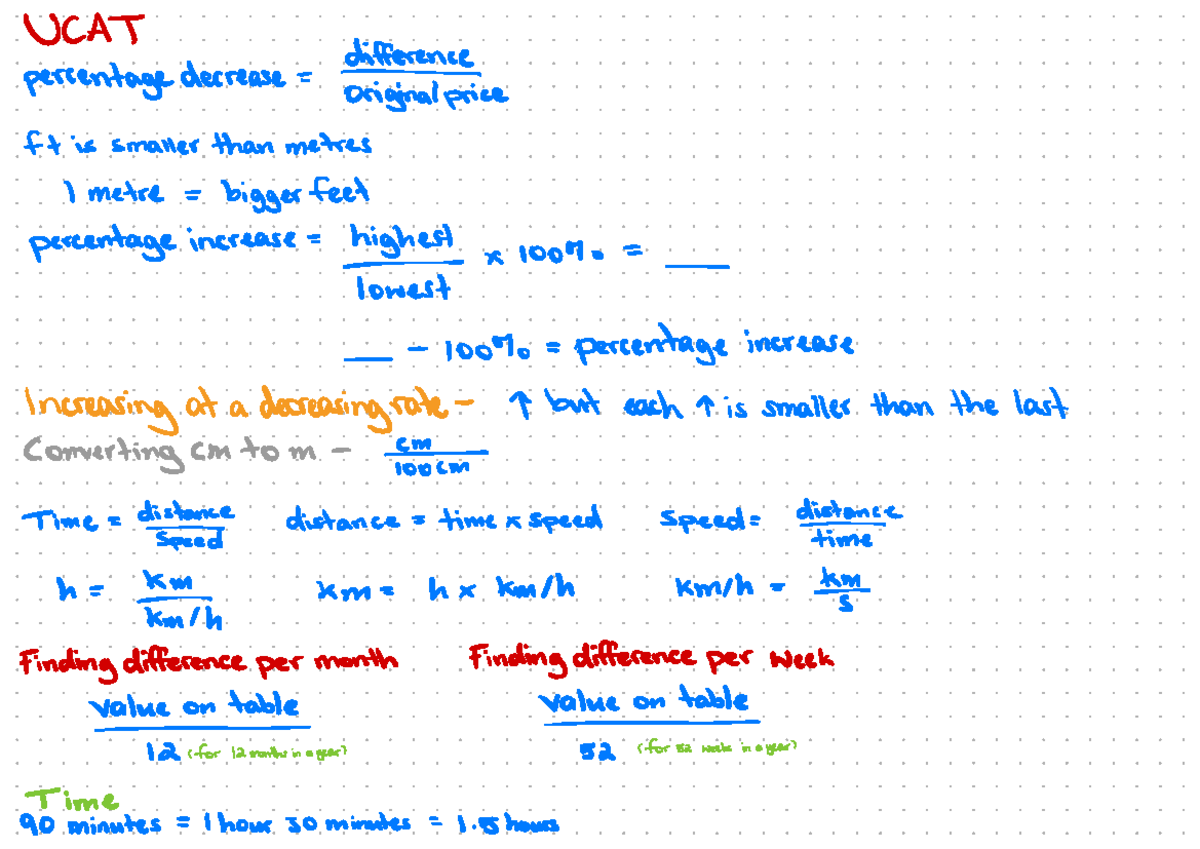 UCAT
percentage decrease = difference / original price
ft is smaller than metres
1 metre = bigger feet
percentage increase = highest / lowest x 100% = ___
___ - 100% = percentage increase
Increasing at a decreasing rate - ↑ but each ↑ is smaller than the last
Converting cm to m - cm / 100cm
Time = distance / speed distance = time x speed speed = distance / time
h = km / km/h km = h x km/h km/h = km / s
Finding difference per month Finding difference per week
value on table value on table
12 (for 12 months in a year) 52 (for 52 week in a year)
Time
90 minutes = 1 hour 30 minutes = 1.5 hours